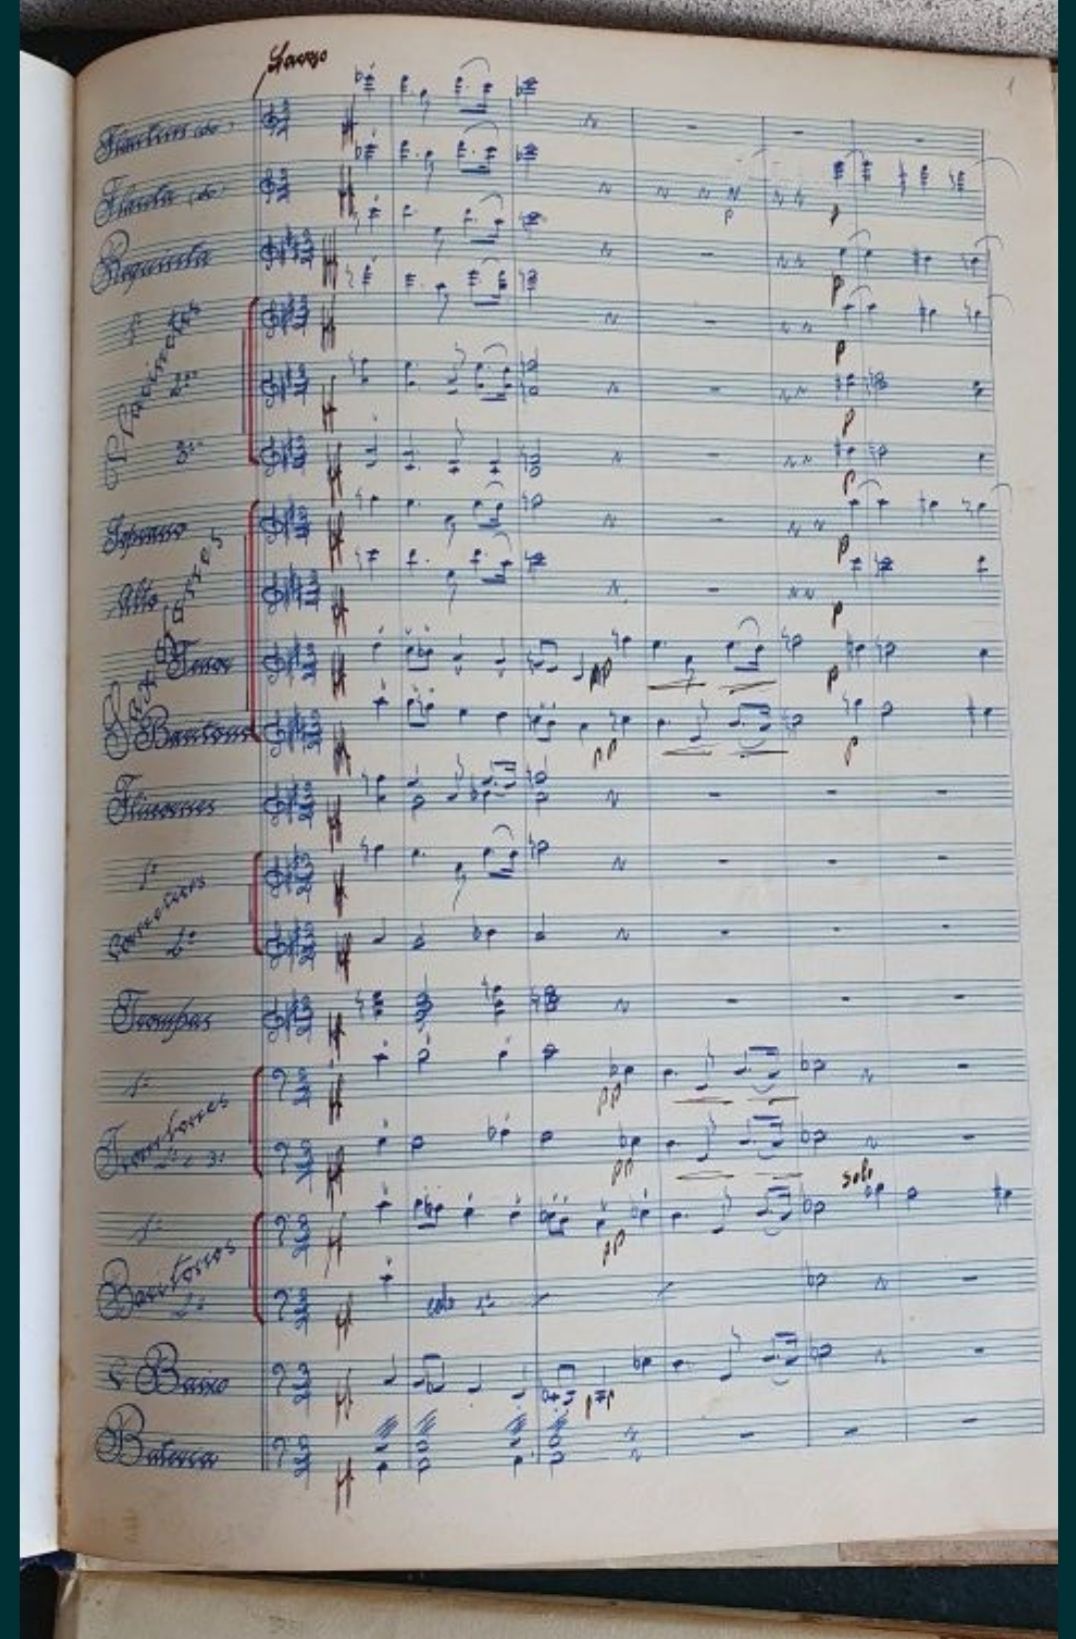 Largo
1
Flautim (do)
Flauta (do)
Requinta
Clarinetes
1º
2º
3º
Saxofones
Soprano
Alto
Tenor
Barítono
Fliscornes
Cornetins
1º
2º
Trompas
Trombones
1º
2º e 3º
solo
Barítonos
1º
2º
colo 1º
Baixo
Bateria